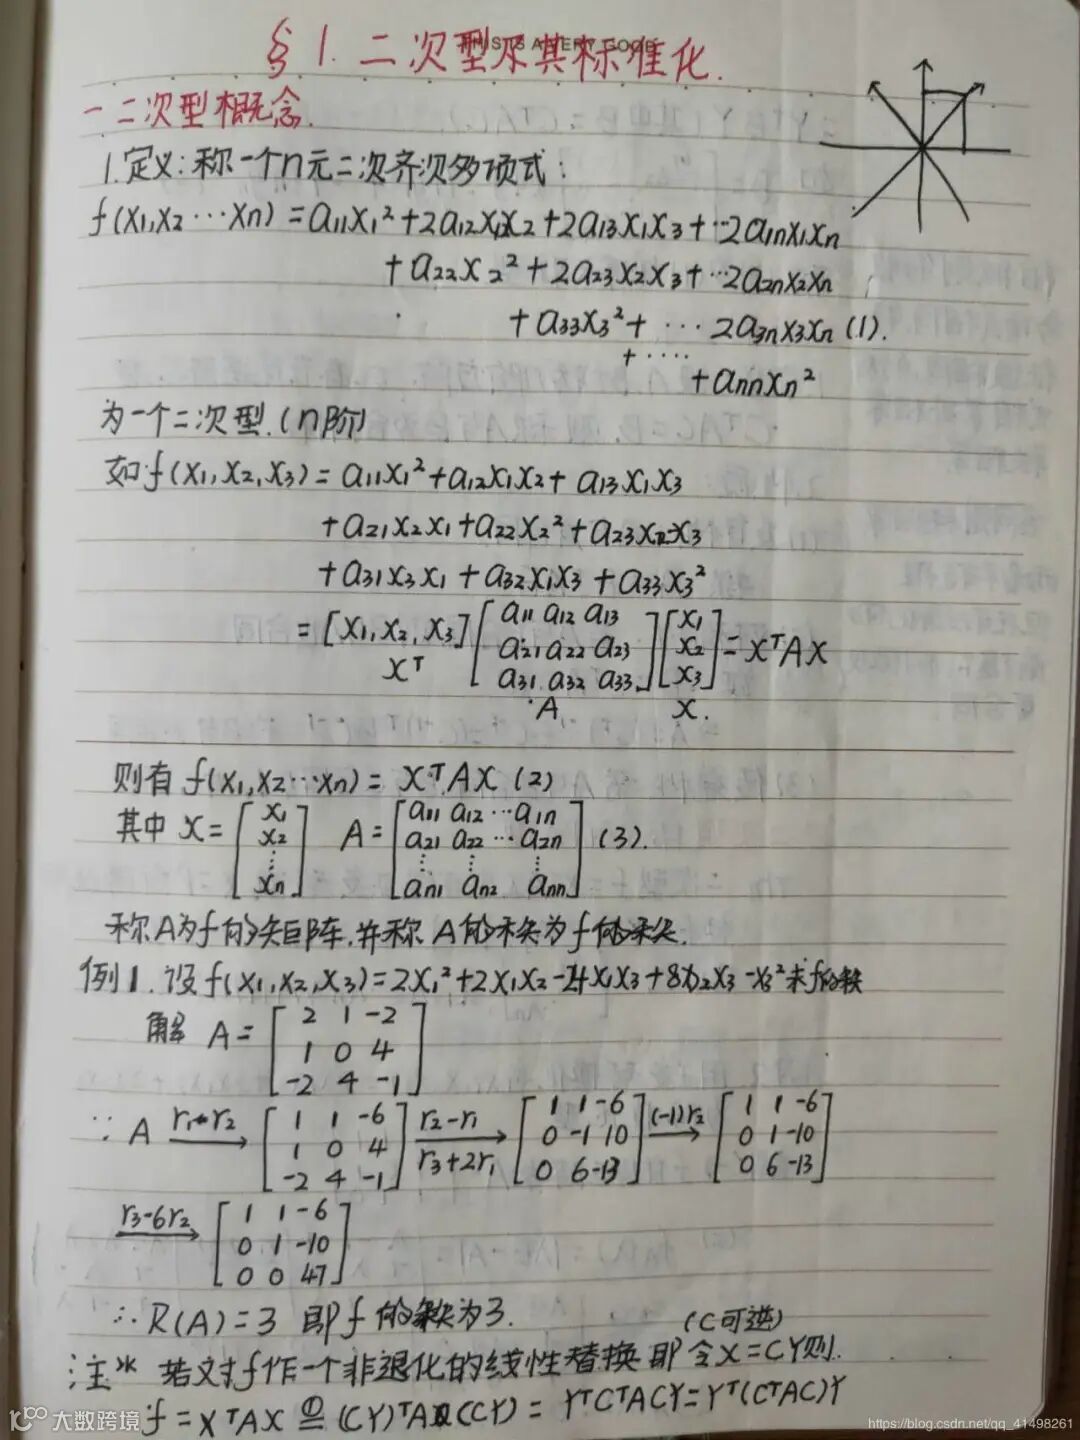 §1.二次型及其标准化.
一 二次型概念.
1.定义:称一个n元二次齐次多项式:
f(x₁,x₂⋯xn)=a₁₁x₁²+2a₁₂x₁x₂+2a₁₃x₁x₃+⋯2a₁nx₁xn
+a₂₂x₂²+2a₂₃x₂x₃+⋯2a₂nx₂xn
+a₃₃x₃²+⋯2a₃nx₃xn (1).
+⋯⋯
+annxn²
为一个二次型.(n阶)
如f(x₁,x₂,x₃)=a₁₁x₁²+a₁₂x₁x₂+a₁₃x₁x₃
+a₂₁x₂x₁+a₂₂x₂²+a₂₃x₂x₃
+a₃₁x₃x₁+a₃₂x₁x₃+a₃₃x₃²
=[x₁,x₂,x₃] [a₁₁ a₁₂ a₁₃ [x₁
a₂₁ a₂₂ a₂₃ x₂ =XᵀAX
Xᵀ a₃₁ a₃₂ a₃₃] x₃]
A X.
则有f(x₁,x₂⋯xn)=XᵀAX (2)
其中 X=[x₁ x₂ ⋮ xn] A=[a₁₁ a₁₂⋯a₁n
a₂₁ a₂₂⋯a₂n (3).
⋮ ⋮ ⋮
an₁ an₂ ann]
称A为f的矩阵,并称A的秩为f的秩.
例1.设f(x₁,x₂,x₃)=2x₁²+2x₁x₂-4x₁x₃+8x₂x₃-x₃²求f的秩
解 A=[2 1 -2
1 0 4
-2 4 -1]
∵A r₁+r₂→ [1 1 -6 r₂-r₁ [1 1 -6 (-1)r₂ [1 1 -6
1 0 4 → 0 -1 10 → 0 1 -10
-2 4 -1] r₃+2r₁ 0 6 -13] 0 6 -13]
r₃-6r₂→ [1 1 -6
0 1 -10
0 0 47]
∴R(A)=3 即f的秩为3.
(C可逆)
注* 若对f作一个非退化的线性替换即令X=CY则.
f=XᵀAX ①= (CY)ᵀA(CY)=YᵀCᵀACY=Yᵀ(CᵀAC)Y
大数跨境
https://blog.csdn.net/qq_41498261